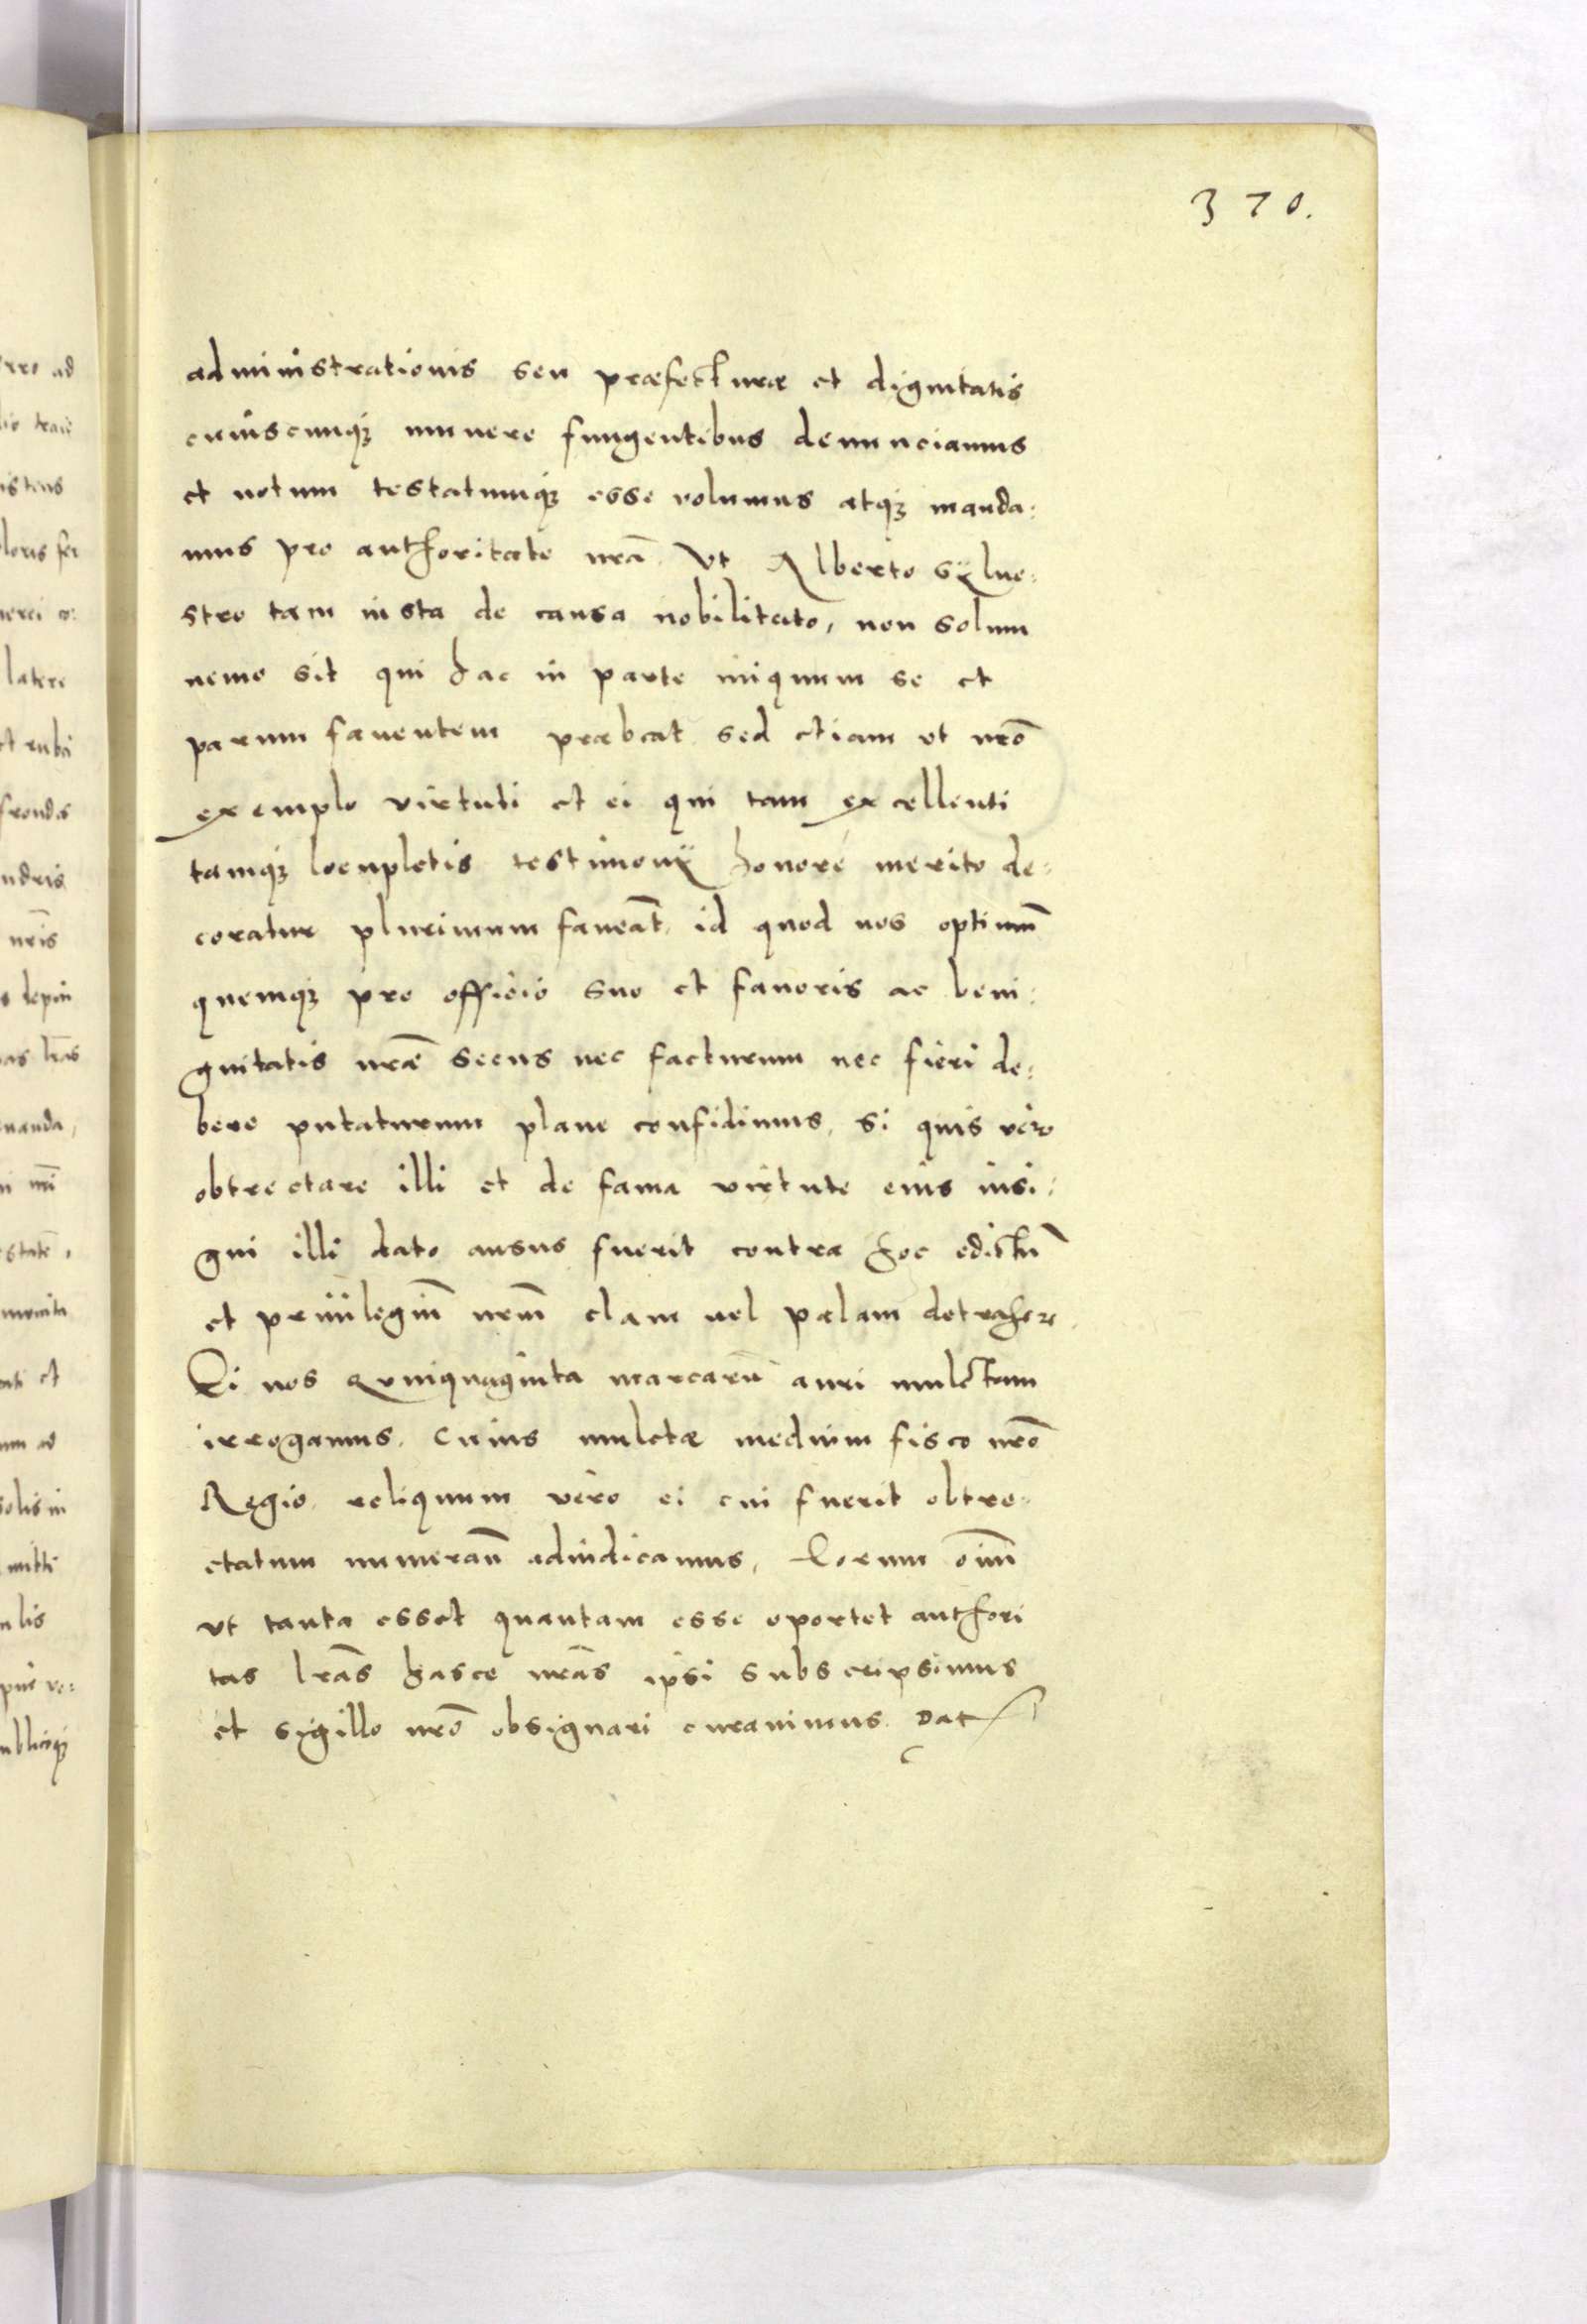 370.
administrationis seu præfecturæ et dignitatis
cuiuscunq; munere fungentibus denunciamus
et notum testatumq; esse volumus atq; manda:
mus pro authoritate nrā. Vt Alberto Sÿlue:
stro tam iusta de causa nobilitato, non solum
nemo sit qui hac in parte iniquum se et
parum fauentem præbeat sed etiam vt nrō
exemplo virtuti et ei qui tam excellenti
tamq; locupletis testimonÿ honore merito de:
coratur plurimum faueāt. id quod nos optimū
quemq; pro officio suo et fauoris ac beni:
gnitatis nrāe secus nec facturum nec fieri de:
bere putaturum plane confidimus. si quis vero
obtrectare illi et de fama virtute eius insi:
gni illi dato ausus fuerit contra hoc edictū
et priuilegiū nrūm clam uel palam detrahere.
Ei nos Quinquaginta marcarū auri mulctam
irrogamus. Cuius mulctæ medium fisco nrō
Regio reliquum vero ei cui fuerit obtre:
ctatum numerari adiudicamus. Eorum oīm
vt tanta esset quantam esse oportet authori
tas lrās hasce nrās ipsi subscripsimus
et sigillo nrō obsignari curauimus. Dat
rro ad
latere
fronda
ndris
nrīs
manda,
solis in